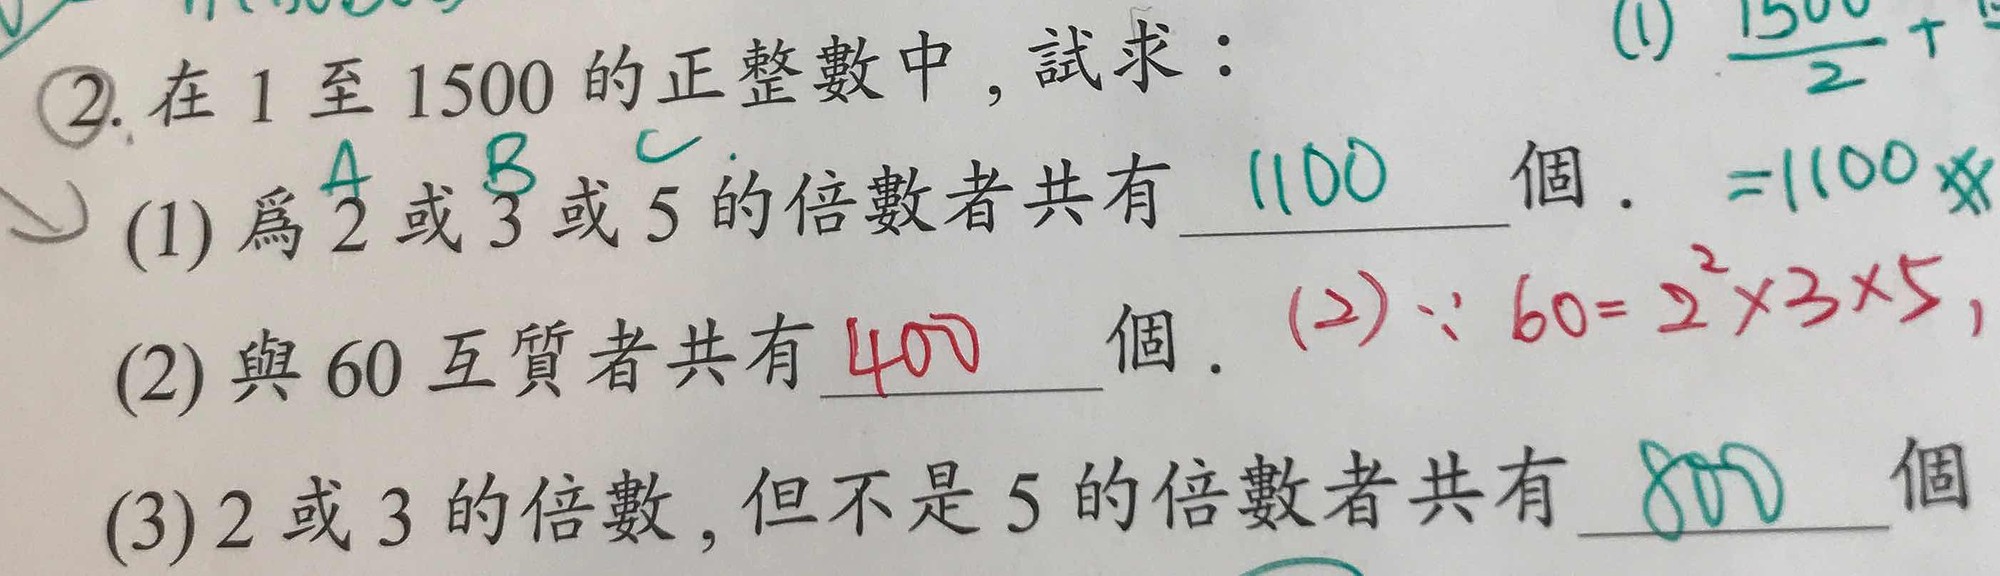 (1) 1500/2 +
2. 在 1 至 1500 的正整數中，試求：
A B C
(1) 爲 2 或 3 或 5 的倍數者共有 1100 個． =1100
(2) 與 60 互質者共有 400 個． (2) ∵ 60=2²×3×5,
(3) 2 或 3 的倍數，但不是 5 的倍數者共有 800 個